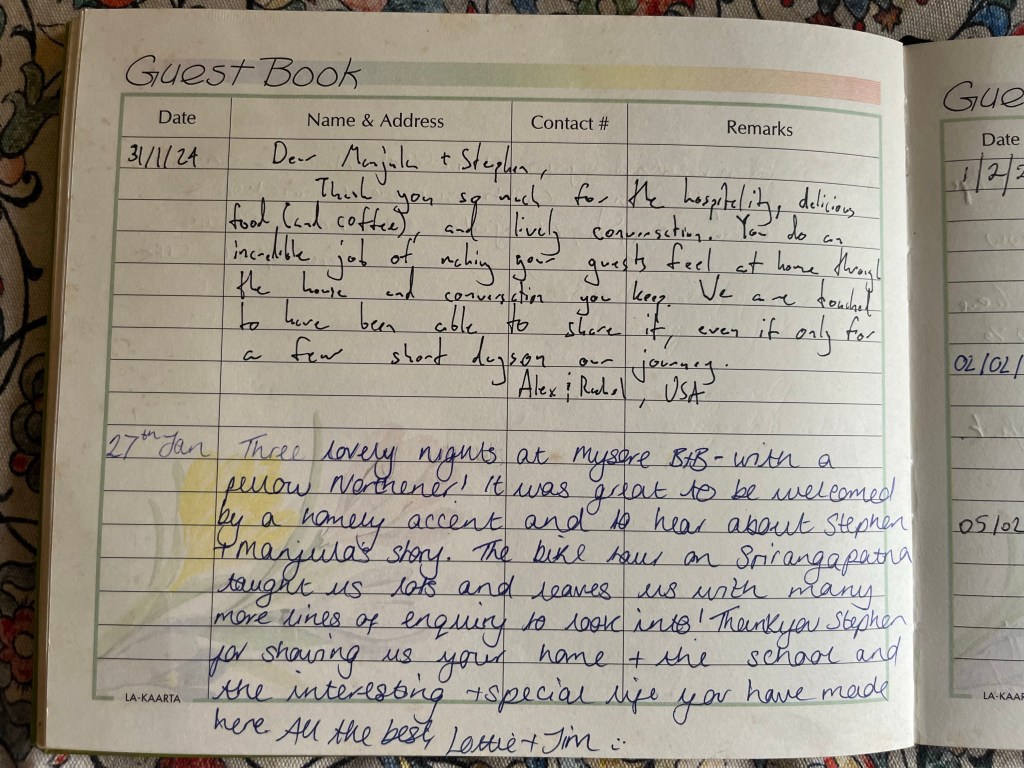 Guest Book
Date Name & Address Contact # Remarks
31/1/24 Dear Manjula + Stephen,
Thank you so much for the hospitality, delicious
food (and coffee), and lively conversation. You do an
incredible job of making your guests feel at home through
the house and conversation you keep. We are touched
to have been able to share it, even if only for
a few short days on our journey.
Alex & Rachel, USA
27th Jan Three lovely nights at Mysore B+B - with a
fellow Northener! It was great to be welcomed
by a homely accent and to hear about Stephen
+ Manjula's story. The bike tour on Srirangapatna
taught us lots and leaves us with many
more lines of enquiry to look into! Thankyou Stephen
for sharing us your home + the school and
the interesting + special life you have made
here All the best, Lottie + Jim :
LA-KAARTA
Gue
Date
1/2/2
02/02/
05/02
LA-KAAR